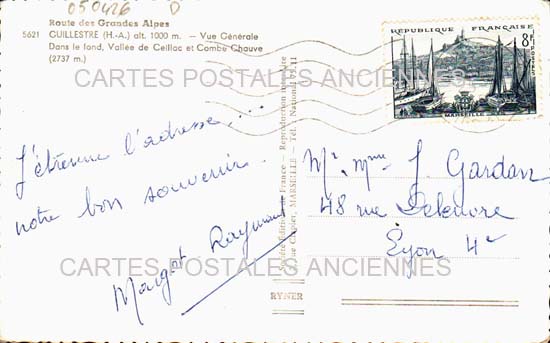 050426 D
Route des Grandes Alpes
5621 GUILLESTRE (H.-A.) alt. 1000 m. — Vue Générale
Dans le fond, Vallée de Ceillac et Combe Chauve
(2737 m.)
RÉPUBLIQUE FRANÇAISE
8F
POSTES
MARSEILLE
CARTES POSTALES ANCIENNES
J'étrenne l'adresse....
notre bon souvenir.
Margot Raymond
Mr. Mme J. Gardan
48 rue Deleuvre
Lyon 4e
Société Éditions de France — Reproduction interdite
rue MARSEILLE — Tél. National
CARTES POSTALES ANCIENNES
RYNER